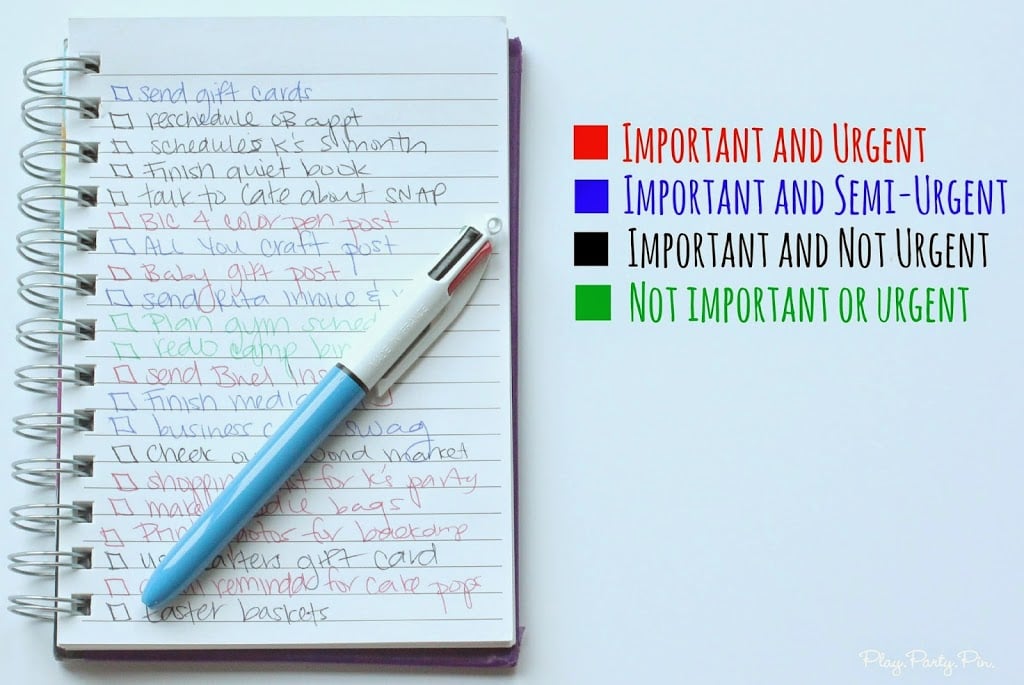 send gift cards
reschedule OB appt
schedule K's 9 month
Finish quiet book
talk to Cate about SNAP
BIC 4 color pen post
ALL YOU craft post
Baby gift post
send invoice &
Plan gym sched
redo camp
send
Finish
business swag
Check market
for K's party
bags
for bookcamp
gift card
for cake pops
Easter baskets
IMPORTANT AND URGENT
IMPORTANT AND SEMI-URGENT
IMPORTANT AND NOT URGENT
NOT IMPORTANT OR URGENT
Play.Party.Pin.